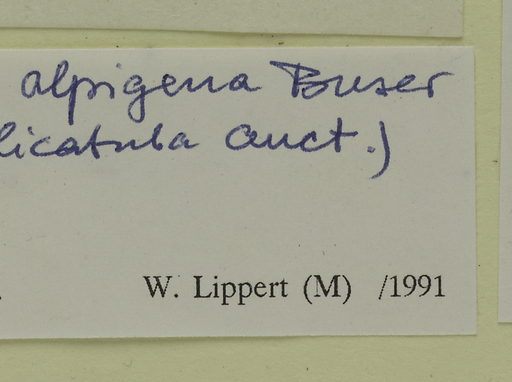 alpigena Buser
licatula auct.)
W. Lippert (M) /1991